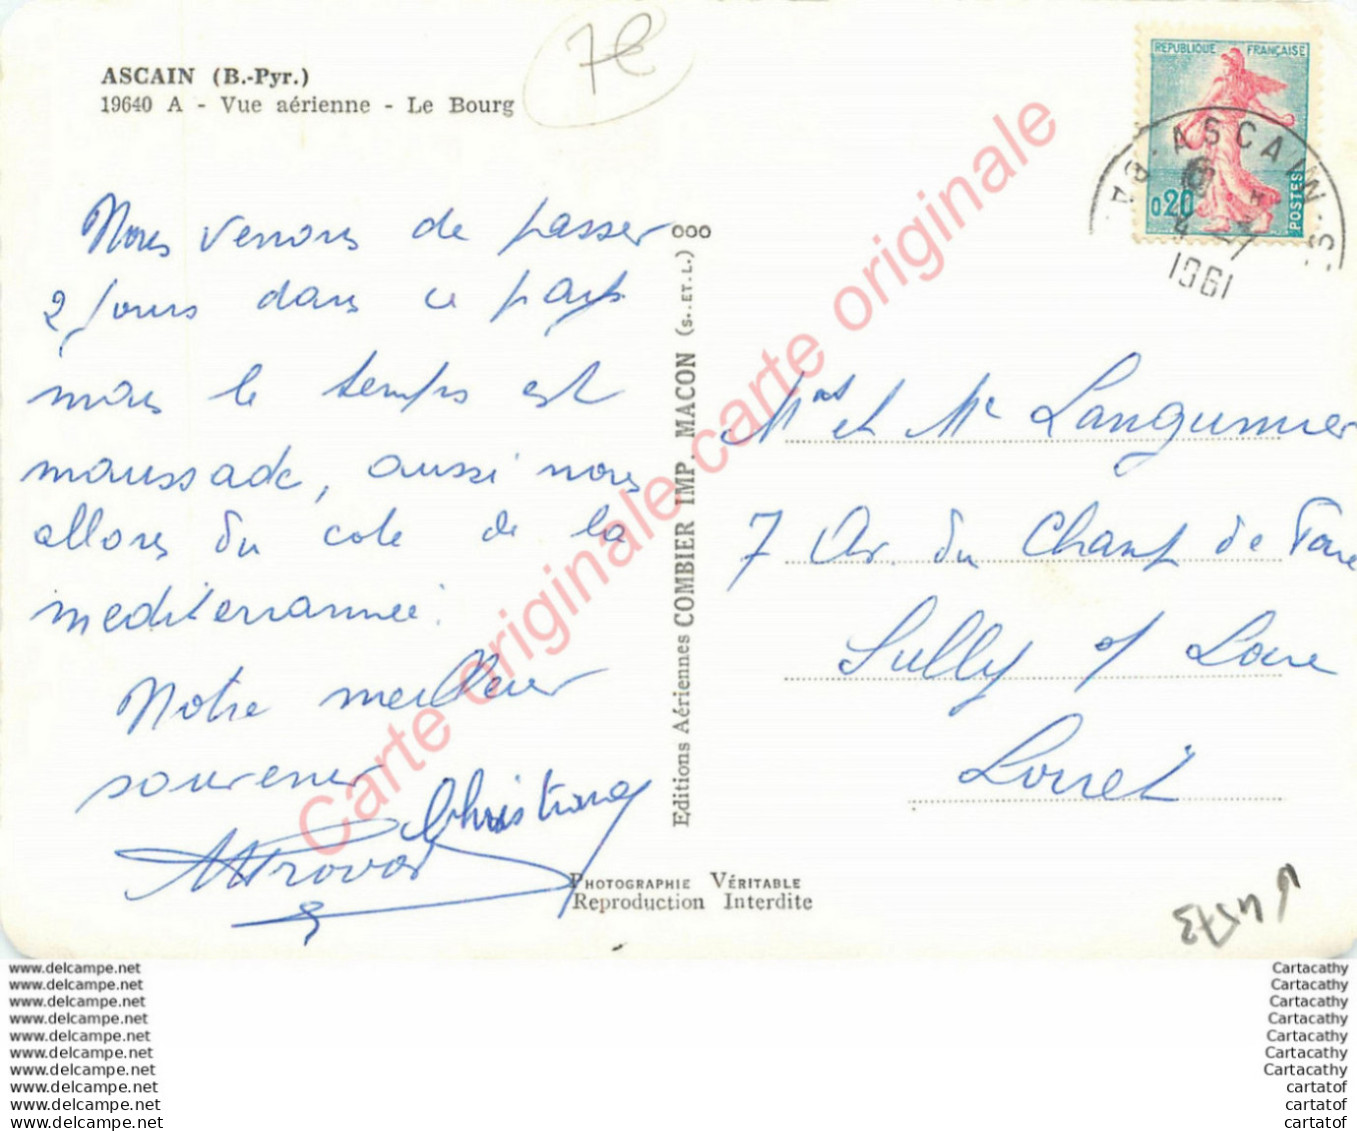 ASCAIN (B.-Pyr.)
19640 A - Vue aérienne - Le Bourg
7€
REPUBLIQUE FRANÇAISE
0,20
POSTES
ASCAIN
1961
Nous venons de passer
2 jours dans ce pays
mais le temps est
maussade, aussi nous
allons du cote de la
mediterrannée.
Notre meilleur
souvenir
Christiane
Editions Aériennes COMBIER IMP. MACON (S.ET.L.)
Mr et Me
7 Av. du Champ de Foire
Sully s/ Loire
Loiret
PHOTOGRAPHIE VÉRITABLE
Reproduction Interdite
Carte originale carte originale carte originale
www.delcampe.net
www.delcampe.net
www.delcampe.net
www.delcampe.net
www.delcampe.net
www.delcampe.net
www.delcampe.net
www.delcampe.net
www.delcampe.net
www.delcampe.net
Cartacathy
Cartacathy
Cartacathy
Cartacathy
Cartacathy
Cartacathy
Cartacathy
cartatof
cartatof
cartatof